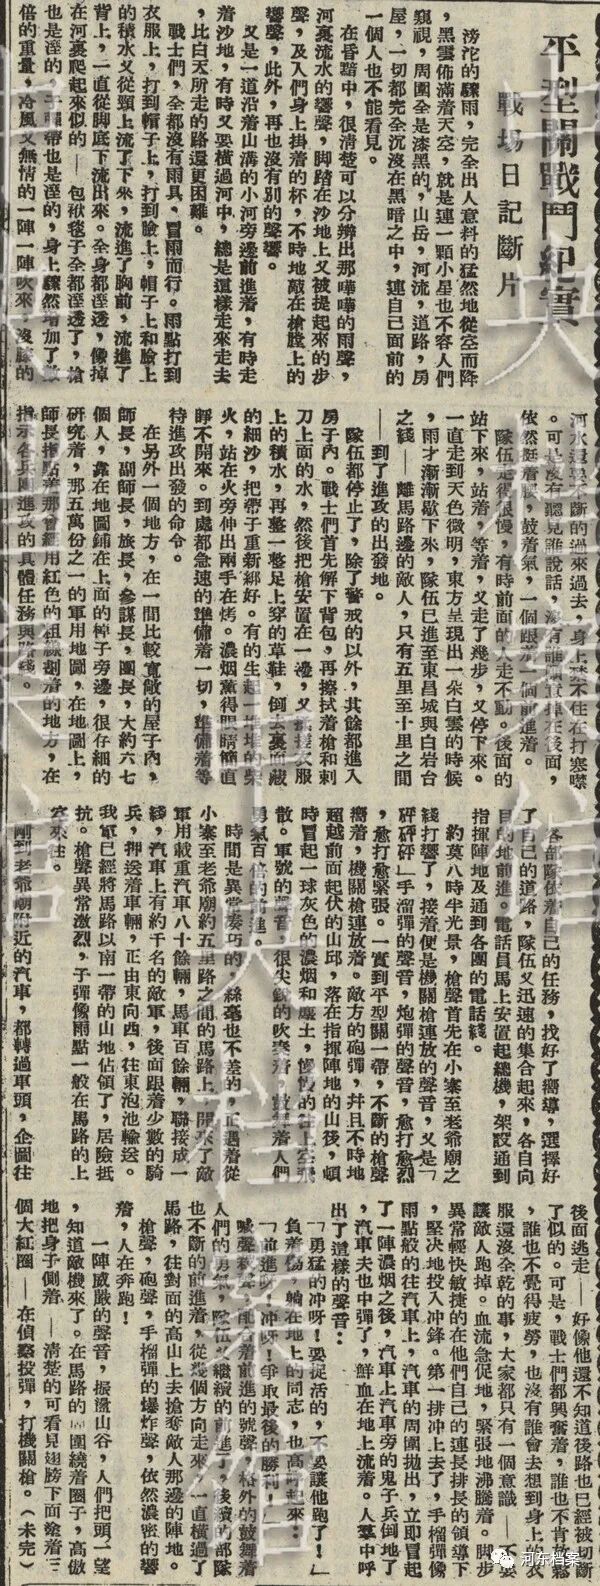 平型關戰鬥紀實
戰場日記斷片
滂沱的驟雨，完全出人意料的猛然地從空而降
，黑雲佈滿着天空，就是連一顆小星也不容人們
窺視，周圍全是漆黑的，山岳，河流，道路，房
屋，一切都完全沉沒在黑暗之中，連自己面前的
一個人也不能看見。
在昏暗中，很清楚可以分辨出那嘩嘩的雨聲，
河裏流水的響聲，脚踏在沙地上又被提起來的步
聲，及人們身上掛着的杯，不時地敲在槍膛上的
響聲，此外，再也沒有別的聲響。
又是一道沿着山溝的小河旁邊前進着，有時走
着沙地，有時又要橫過河中，總是這樣走來走去
，比白天所走的路還更困難。
戰士們，全都沒有雨具，冒雨而行。雨點打到
衣服上，打到帽子上，打到臉上，帽子上和臉上
的積水又從頸上流了下來，流進了胸前，流進了
背上，一直從脚底下流出來。全身都溼透，像掉
在河裏爬起來似的——包袱毯子全都溼透了，槍
也是溼的，子彈帶也是溼的，身上驟然增加了數
倍的重量，冷風又無情的一陣一陣吹來，沒膝的
河水還是不斷的過來過去，身上禁不住在打寒噤
。可是沒有聽見誰說話，沒有誰願意掉在後面，
依然挺着腰，鼓着氣，一個跟着一個前進着。
隊伍走得很慢，有時前面的人走不動。後面的
站下來，站着，等着，又走了幾步，又停下來。
一直走到天色微明，東方呈現出一朵白雲的時候
，雨才漸漸歇下來，隊伍已進至東昌城與白岩台
之綫——離馬路邊的敵人，只有五里至十里之間
——到了進攻的出發地。
隊伍都停止了，除了警戒的以外，其餘都進入
房子內。戰士們首先解下背包，再擦拭着槍和刺
刀上面的水，然後把槍安置在一邊，又擰擰衣服
上的積水，再整一整足上穿的草鞋，倒去裏面藏
的細沙，把帶子重新綁好。有的生起一堆堆的柴
火，站在火旁伸出兩手在烤。濃烟薰得眼睛簡直
睜不開來。到處都急速的準備着一切，準備着等
待進攻出發的命令。
在另外一個地方，在一間比較寬敞的屋子內，
師長，副師長，旅長，參謀長，團長，大約六七
個人，靠在地圖鋪在上面的棹子旁邊，很仔細的
研究着，那五萬份之一的軍用地圖，在地圖上，
師長指點着那曾經用紅色的粗線劃着的地方，在
指示各兵團進攻的具體任務與路綫。
各部隊依着自己的任務，找好了嚮導，選擇好
了自己的道路，隊伍又迅速的集合起來，各自向
目的地前進。電話員馬上安置起總機，架設通到
指揮陣地及通到各團的電話綫。
約莫八時半光景，槍聲首先在小寨至老爺廟之
綫打響了，接着便是機關槍連放的聲音，又是「
砰砰砰」手溜彈的聲音，炮彈的聲音，愈打愈烈
，愈打愈緊張。一實到平型關一帶，不斷的槍聲
嚮着，機關槍連放着。敵方的砲彈，幷且不時地
超越前面起伏的山邱，落在指揮陣地的山後，頓
時冒起一球灰色的濃烟和塵土，慢慢的往上空飛
散。軍號的聲音，很尖銳的吹奏着，鼓舞着人們
勇氣百倍的前進。
時間是異常凑巧的，絲毫也不差的，正遇着從
小寨至老爺廟約五里路之間的馬路上，開來了敵
軍用載重汽車八十餘輛，馬車百餘輛，聯接成一
綫，汽車上有約千名的敵軍，後面跟着少數的騎
兵，押送着車輛，正由東向西，往東泡池輸送。
我軍已經將馬路以南一帶的山地佔領了，居險抵
抗。槍聲異常激烈，子彈像雨點一般在馬路的上
空來往。
剛到老爺廟附近的汽車，都轉過車頭，企圖往
後面逃走——好像他還不知道後路也已經被切斷
了似的。可是，戰士們都興奮着，誰也不肯放鬆
，誰也不覺得疲勞，也沒有誰會去想到身上的衣
服還沒全乾的事，大家都只有一個意識——不要
讓敵人跑掉。血流急促地，緊張地沸騰着。脚步
異常輕快敏捷的在他們自己的連長排長的領導下
，堅決地投入冲鋒。第一排冲上去了，手榴彈像
雨點般的往汽車上，汽車的周圍拋出，立即冒起
了一陣濃烟之後，汽車上汽車旁的鬼子兵倒地了
，汽車夫也中彈了，鮮血在地上流着。人羣中呼
出了這樣的聲音：
「勇猛的冲呀！要捉活的，不要讓他跑了！」
負着傷，躺在地上的同志，也高呼起來：
「前進呀！冲呀！爭取最後的勝利！」
喊聲和槍聲，配合着前進的號聲，格外的鼓舞着
人們的勇氣，隊伍又繼續的前進了，後續的部隊
也不斷的前進着，從幾個方向走來，一直橫過了
馬路，往對面的高山上去搶奪敵人那邊的陣地。
槍聲，砲聲，手榴彈的爆炸聲，依然濃密的響
着，人在奔跑！
一陣威嚴的聲音，振盪山谷，人們把頭一望
，知道敵機來了。在馬路的周圍繞着圈子，高傲
地把身子側着——清楚的可看見翅膀下面塗着三
個大紅圈——在偵察投彈，打機關槍。（未完）
中央檔案館
河东档案